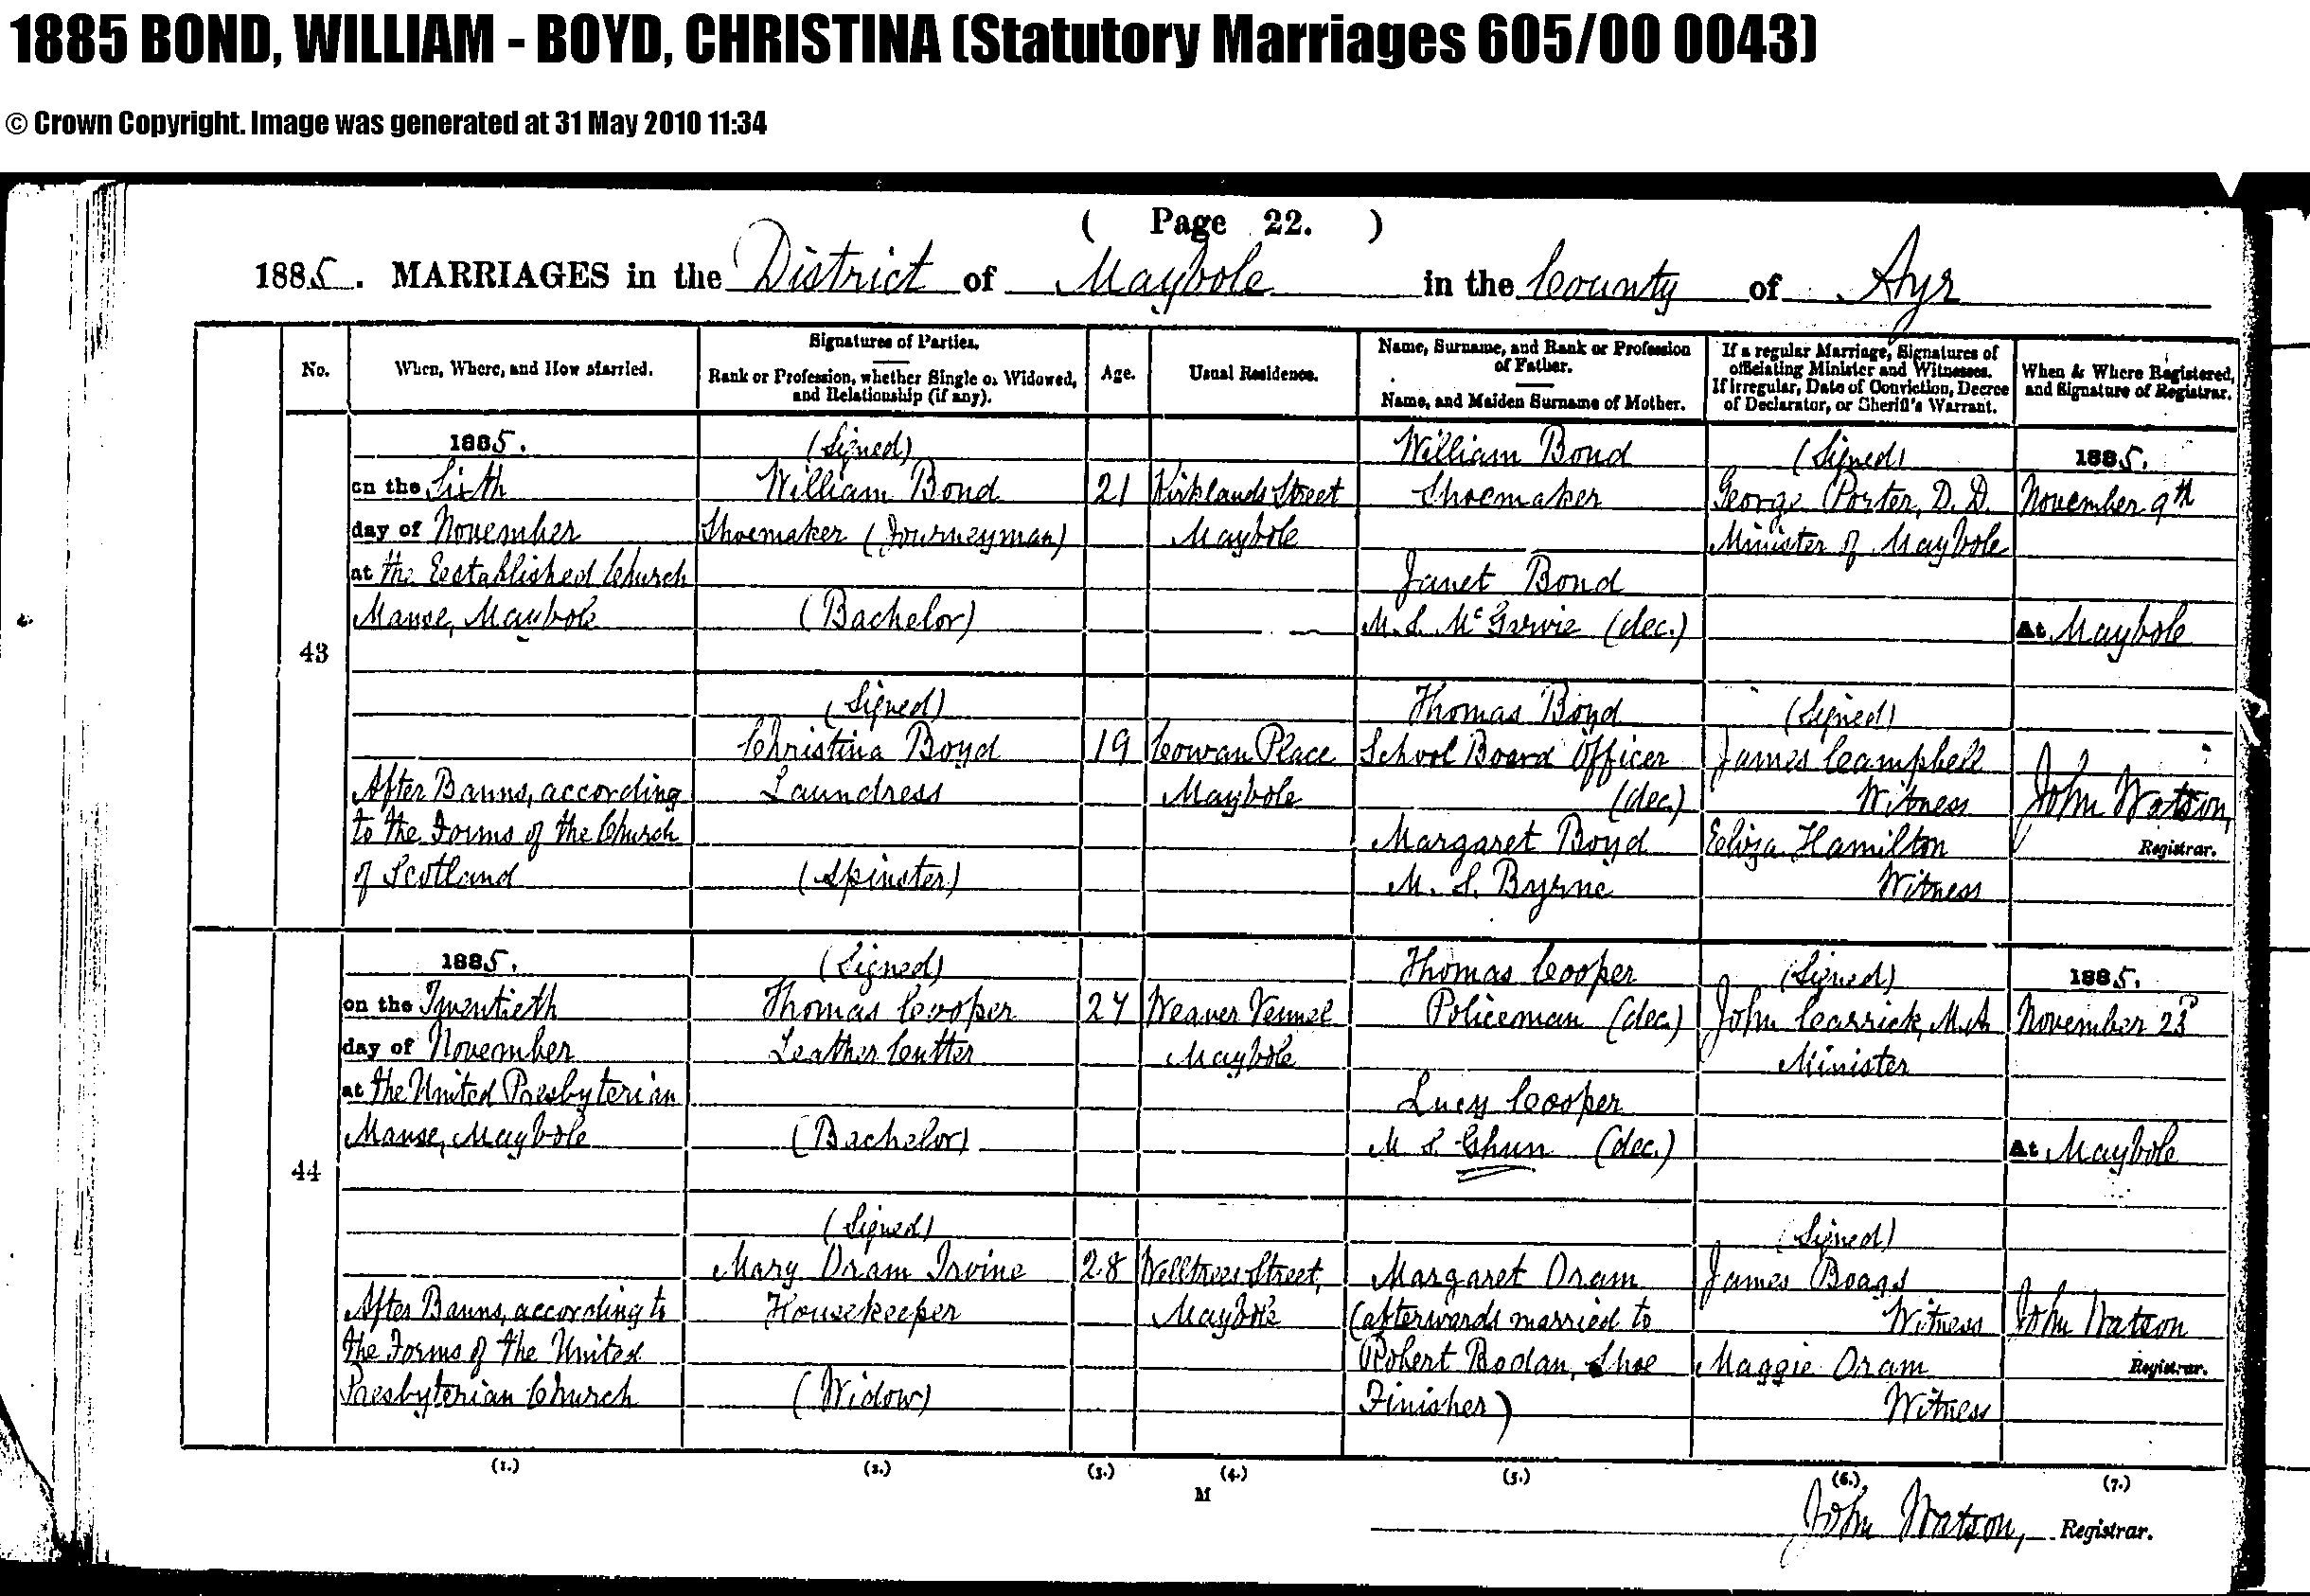 1885 BOND, WILLIAM - BOYD, CHRISTINA (Statutory Marriages 605/00 0043)
© Crown Copyright. Image was generated at 31 May 2010 11:34
( Page 22. )
1885. MARRIAGES in the District of Maybole in the County of Ayr
No.
When, Where, and How Married.
Signatures of Parties.
Rank or Profession, whether Single or Widowed, and Relationship (if any).
Age.
Usual Residence.
Name, Surname, and Rank or Profession of Father.
Name, and Maiden Surname of Mother.
If a regular Marriage, Signatures of officiating Minister and Witnesses.
If irregular, Date of Conviction, Decree of Declarator, or Sheriff's Warrant.
When & Where Registered, and Signature of Registrar.
43
1885.
on the Sixth
day of November
at the Established Church
Manse, Maybole
After Banns, according
to the Forms of the Church
of Scotland
(Signed)
William Bond
Shoemaker (Journeyman)
(Bachelor)
(Signed)
Christina Boyd
Laundress
(Spinster)
21
19
Kirklands Street
Maybole
Cowan Place
Maybole
William Bond
Shoemaker
Janet Bond
M.S. McGarvie (dec.)
Thomas Boyd
School Board Officer
(dec.)
Margaret Boyd
M.S. Byrne
(Signed)
George Porter, D.D.
Minister of Maybole
(Signed)
James Campbell
Witness
Eliza Hamilton
Witness
1885.
November 9th
At Maybole
John Watson,
Registrar.
44
1885.
on the Twentieth
day of November
at the United Presbyterian
Manse, Maybole
After Banns, according to
the Forms of the United
Presbyterian Church
(Signed)
Thomas Cooper
Leather Cutter
(Bachelor)
(Signed)
Mary Oram Irvine
Housekeeper
(Widow)
28
Weaver Vennel
Maybole
Welltrees Street,
Maybole
Thomas Cooper
Policeman (dec.)
Lucy Cooper
M S Ghun (dec.)
Margaret Oram
(afterwards married to
Robert Bodan, Shoe
Finisher)
(Signed)
John Carrick, M.A
Minister
(Signed)
James Boags
Witness
Maggie Oram
Witness
1885.
November 23d
At Maybole
John Watson
Registrar.
(1.) (2.) (3.) (4.) (5.) (6.) (7.)
M
John Watson, Registrar.